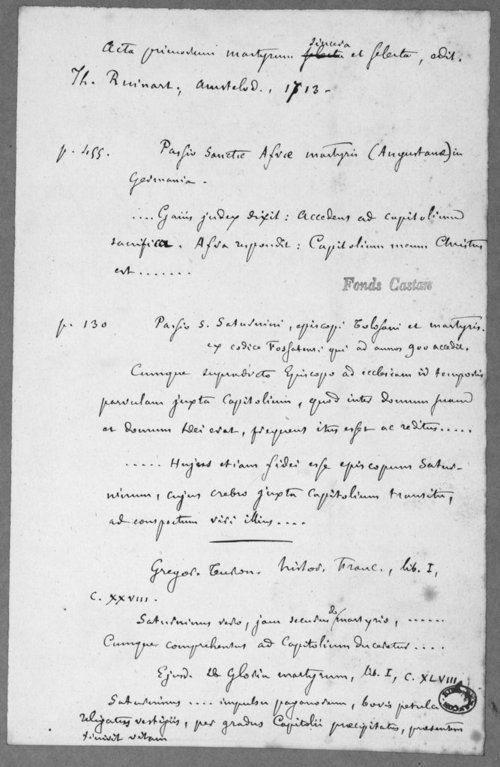 sincera
Acta primorum martyrum selecta et selecta, edit.
Th. Ruinart, Amstelod., 1713 -
p. 455. Passio Sanctæ Afræ martyris (Augustanæ) in
Germania.
.... Gaius judex dixit : Accedens ad capitolium
sacrifica. Afra respondit : Capitolium meum Christus
est .......
Fonds Castan
p. 130 Passio S. Saturnini, episcopi Tolosani et martyris.
ex codice Fossatensi qui ad annos 900 accedit.
Cumque supradicto Episcopo ad ecclesiam id temporis
parvulam juxta Capitolium, quod inter domum suam
et domum Dei erat, frequens itus esset ac reditus .....
..... Hujus etiam fidei esse episcopum Satur-
ninum, cujus crebro juxta Capitolium transitu,
ad conspectum viri illius ....
Gregor. Turon. histor. Franc., lib. I,
C. XXVIII.
Saturninus vero, jam securus de martyrio, ......
Cumque comprehensus ad Capitolium duceretur ....
Ejusd. De Gloria martyrum, lib. I, C. XLVIII.
Saturninus .... impulsu paganorum, bovis petulci
religatus vestigiis, per gradus Capitolii præcipitatus, præsentem
finivit vitam